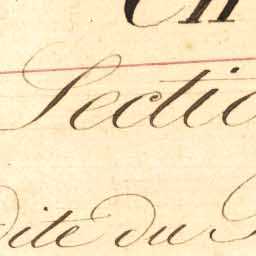 Sectio
Dite du